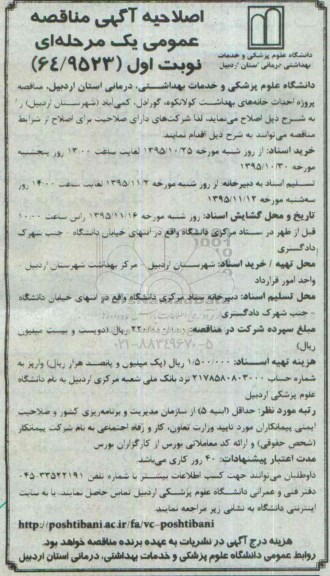 اصلاحیه آگهی مناقصه
عمومی یک مرحله‌ای
نوبت اول (۶۴/۹۵۲۳)
دانشگاه علوم پزشکی و خدمات
بهداشتی درمانی استان اردبیل
دانشگاه علوم پزشکی و خدمات بهداشتی، درمانی استان اردبیل، مناقصه
پروژه احداث خانه‌های بهداشت کولانکوه، گورادل، کمی‌آباد (شهرستان اردبیل) را
به شرح ذیل اصلاح می‌نماید، لذا شرکت‌های دارای صلاحیت برای اصلاح از شرایط
مناقصه می‌توانند به شرح ذیل اقدام نمایند.
خرید اسناد: از روز شنبه مورخه ۱۳۹۵/۱۰/۲۵ لغایت ساعت ۱۳:۰۰ روز پنجشنبه
مورخه ۱۳۹۵/۱۰/۳۰
تسلیم اسناد به دبیرخانه: از روز شنبه مورخه ۱۳۹۵/۱۱/۲ لغایت ساعت ۱۴:۰۰ روز
سه‌شنبه مورخه ۱۳۹۵/۱۱/۱۲
تاریخ و محل گشایش اسناد: روز شنبه مورخه ۱۳۹۵/۱۱/۱۶ راس ساعت ۱۰:۰۰
قبل از ظهر در ستاد مرکزی دانشگاه واقع در انتهای خیابان دانشگاه - جنب شهرک
دادگستری
محل تهیه / خرید اسناد: شهرستان اردبیل - مرکز بهداشت شهرستان اردبیل -
واحد امور قرارداد
محل تسلیم اسناد: دبیرخانه ستاد مرکزی دانشگاه واقع در انتهای خیابان دانشگاه
- جنب شهرک دادگستری
مبلغ سپرده شرکت در مناقصه: ریال (دویست و بیست میلیون
ریال)
هزینه تهیه اسناد: ۱/۵۰۰/۰۰۰ ریال (یک میلیون و پانصد هزار ریال) واریز به
شماره حساب ۲۱۷۸۵۸۰۸۰۳۰۰۰ نزد بانک ملی شعبه مرکزی اردبیل به نام دانشگاه
علوم پزشکی اردبیل
رتبه مورد نظر: حداقل (ابنیه ۵) از سازمان مدیریت و برنامه‌ریزی کشور و صلاحیت
ایمنی پیمانکاران مورد تایید وزارت تعاون، کار و رفاه اجتماعی به نام شرکت پیمانکار
(شخص حقوقی) و ارائه کد معاملاتی بورس از کارگزاران بورس
مدت اعتبار پیشنهادات: ۴۰ روز کاری می‌باشد.
داوطلبان می‌توانند جهت کسب اطلاعات بیشتر با شماره تلفن ۳۳۵۲۲۱۹۱-۰۴۵
دفتر فنی و عمرانی دانشگاه علوم پزشکی اردبیل تماس حاصل نمایند، یا به سایت
اینترنتی دانشگاه به نشانی زیر مراجعه نمایند.
http://poshtibani.ac.ir/fa/vc-poshtibani
هزینه درج آگهی در نشریات به عهده برنده مناقصه خواهد بود.
روابط عمومی دانشگاه علوم پزشکی و خدمات بهداشتی، درمانی استان اردبیل
۰۲۱-۸۸۳۴۹۶۷۰-۵